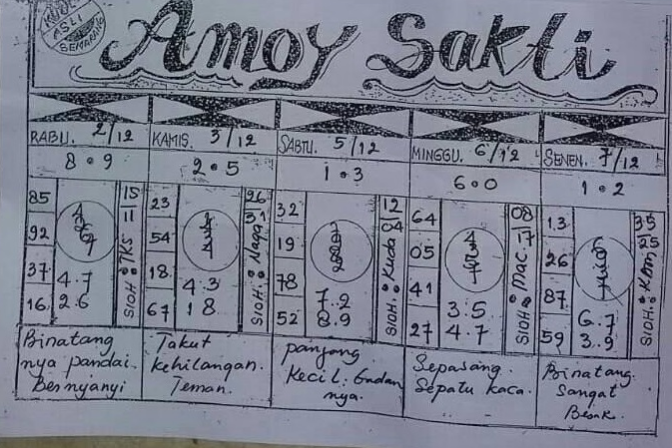 ASLI
SEMARANG
Amoy Sakti
RABU. 2/12
8 • 9
85
92
37
16
4.7
2.6
15
11
SIOH: TKS
Binatang
nya pandai.
Bernyanyi
KAMIS. 3/12
2 • 5
23
54
18
67
4.3
1 8
26
31
SIOH: Naga
Takut
kehilangan.
Teman.
SABTU. 5/12
1 • 3
32
19
78
52
7.2
8.9
12
04
SIOH: Kuda
panjang
Kecil: Badan
nya.
MINGGU. 6/12
6 • 0
64
05
41
27
3.5
4.7
08
17
SIOH: Mac
Sepasang.
Sepatu kaca.
SENEN. 7/12
1 • 2
13
26
87
59
6.7
3.9
35
25
SIOH: Kbn
Binatang.
Sangat
Besar.